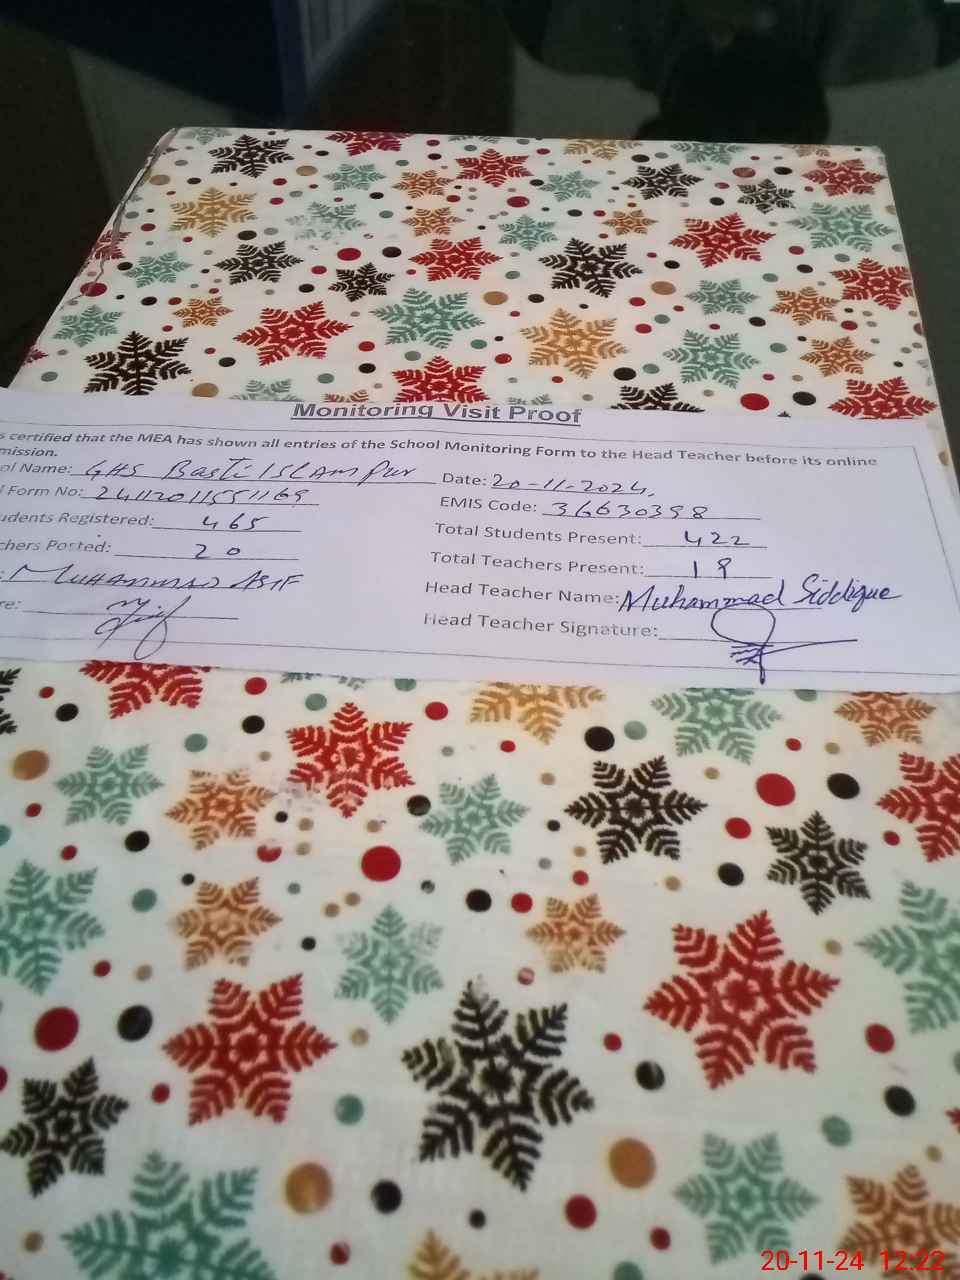 Monitoring Visit Proof
s certified that the MEA has shown all entries of the School Monitoring Form to the Head Teacher before its online
mission.
ol Name: GHS Basti Islam Pur Date: 20-11-2024.
l Form No: 24112011551169 EMIS Code: 36630398
udents Registered: 465 Total Students Present: 422
chers Posted: 20 Total Teachers Present:
: Muhammad Asif Head Teacher Name: Muhammad Siddique
re: Head Teacher Signature:
20-11-24 12:22